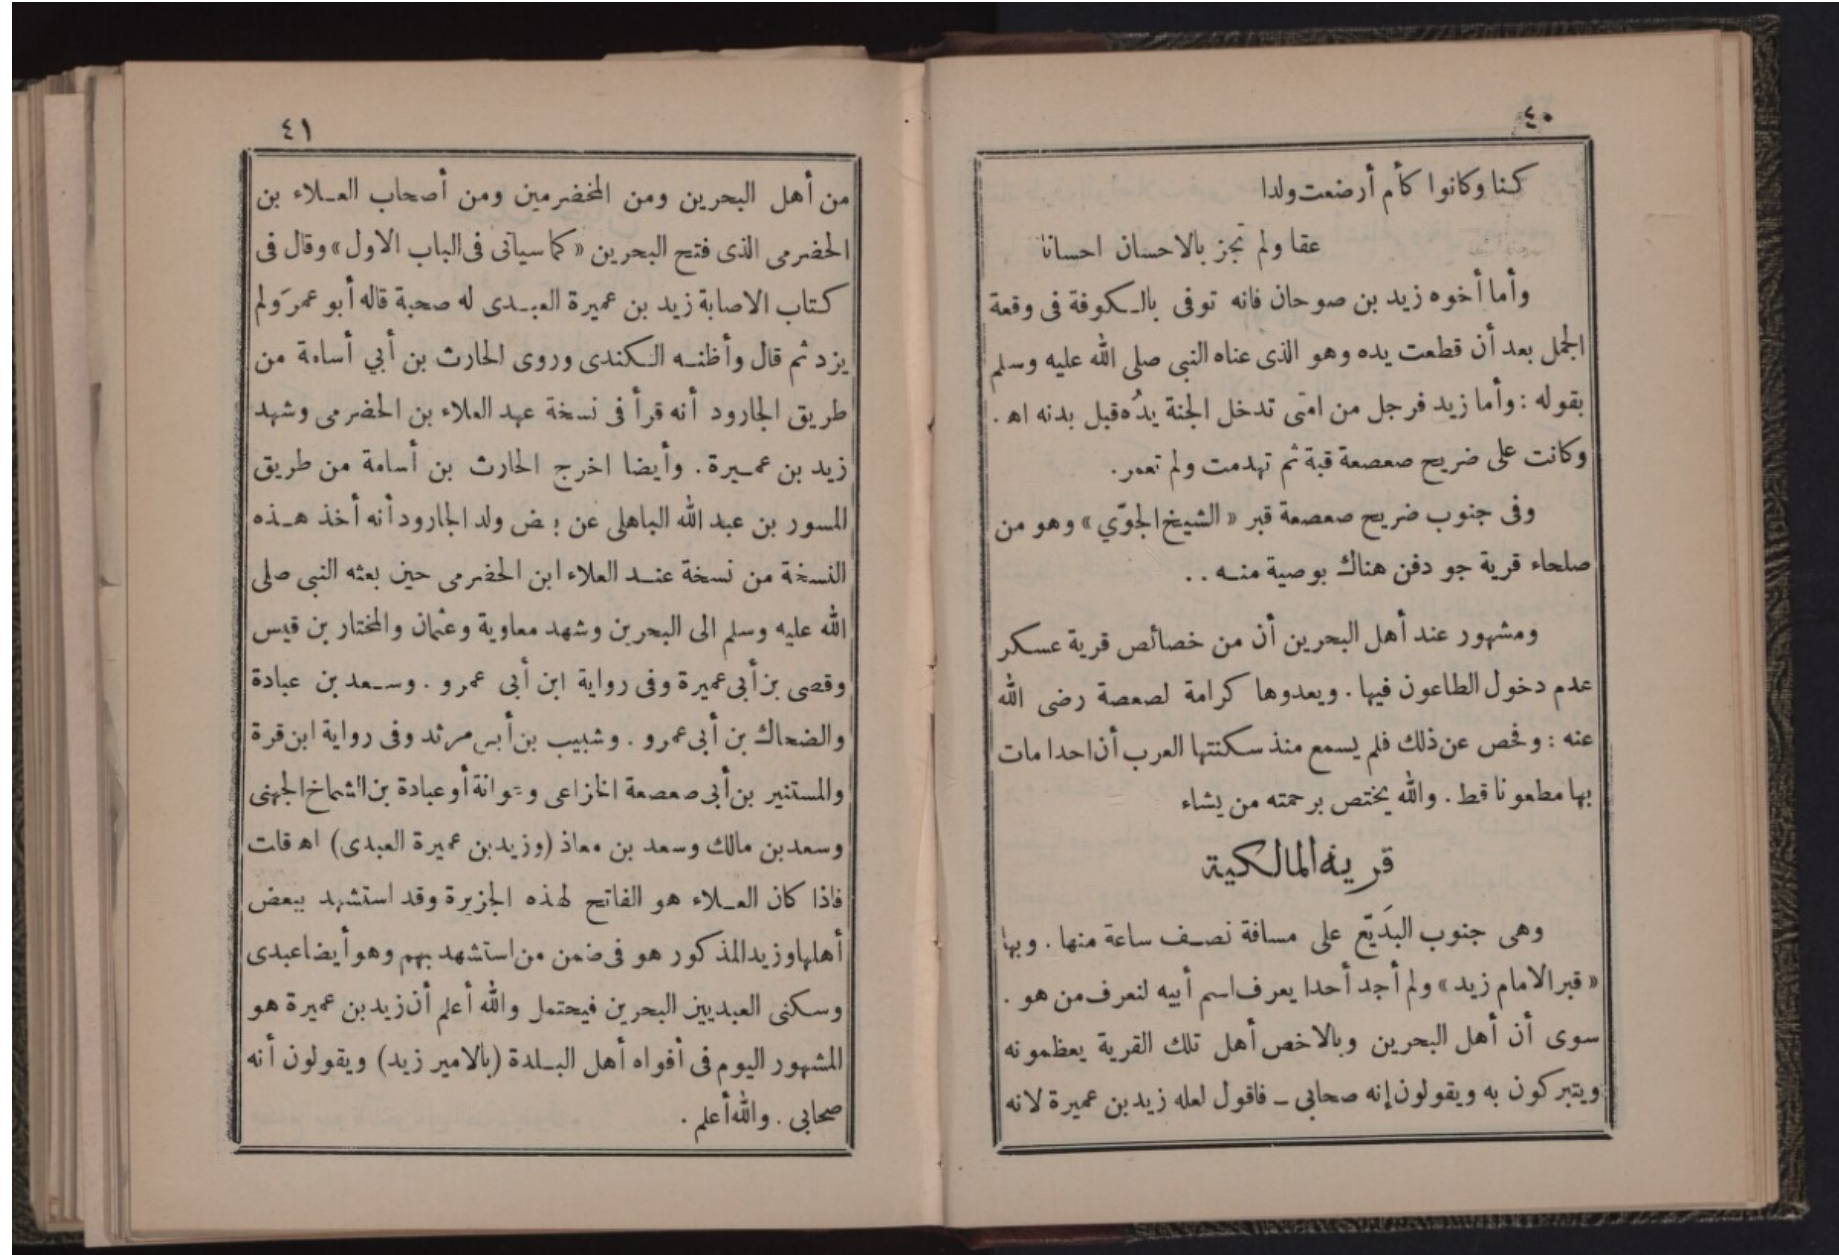 ٤٠
كنا وكانوا كأم أرضعت ولدا
عقا ولم تجز بالاحسان احسانا
وأما أخوه زيد بن صوحان فانه توفى بالكوفة فى وقعة
الجمل بعد أن قطعت يده وهو الذى عناه النبى صلى الله عليه وسلم
بقوله : وأما زيد فرجل من امتى تدخل الجنة يدُه قبل بدنه اه .
وكانت على ضريح صعصعة قبة ثم تهدمت ولم تعمر .
وفى جنوب ضريح صعصعة قبر « الشيخ الجوّي » وهو من
صلحاء قرية جو دفن هناك بوصية منه . .
ومشهور عند أهل البحرين أن من خصائص قرية عسكر
عدم دخول الطاعون فيها . ويعدوها كرامة لصعصة رضى الله
عنه : وفحص عن ذلك فلم يسمع منذ سكنتها العرب أن احدا مات
بها مطعونا قط . والله يختص برحمته من يشاء
قرية المالكية
وهى جنوب البَديّع على مسافة نصف ساعة منها . وبها
« قبر الامام زيد » ولم أجد أحدا يعرف اسم أبيه لنعرف من هو .
سوى أن أهل البحرين وبالاخص أهل تلك القرية يعظمونه
ويتبركون به ويقولون إنه صحابى ـ فاقول لعله زيد بن عميرة لانه
٤١
من أهل البحرين ومن المخضرمين ومن أصحاب العلاء بن
الحضرمى الذى فتح البحرين « كما سيأتى فى الباب الاول » وقال فى
كتاب الاصابة زيد بن عميرة العبدى له صحبة قاله أبو عمرَ ولم
يزد ثم قال وأظنه الكندى وروى الحارث بن أبي أسامة من
طريق الجارود أنه قرأ فى نسخة عهد العلاء بن الحضرمى وشهد
زيد بن عميرة . وأيضا اخرج الحارث بن أسامة من طريق
المسور بن عبد الله الباهلى عن بعض ولد الجارود أنه أخذ هذه
النسخة من نسخة عند العلاء ابن الحضرمى حين بعثه النبى صلى
الله عليه وسلم الى البحرين وشهد معاوية وعثمان والمختار بن قيس
وقصى بن أبى عميرة وفى رواية ابن أبى عمرو . وسعد بن عبادة
والضحاك بن أبى عمرو . وشبيب بن أبى مرثد وفى رواية ابن قرة
والمستنير بن أبى صعصعة الخزاعى وعوانة أو عبادة بن الشماخ الجهنى
وسعد بن مالك وسعد بن معاذ (وزيد بن عميرة العبدى) اه قلت
فاذا كان العلاء هو الفاتح لهذه الجزيرة وقد استشهد ببعض
أهلها وزيد المذكور هو فى ضمن من استشهد بهم وهو أيضا عبدى
وسكنى العبديين البحرين فيحتمل والله أعلم أن زيد بن عميرة هو
المشهور اليوم فى أفواه أهل البلدة (بالامير زيد) ويقولون أنه
صحابى . والله أعلم .